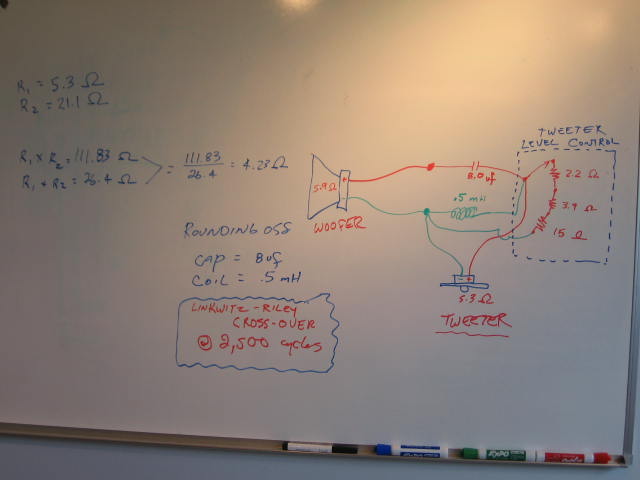 R₁ = 5.3 Ω
R₂ = 21.1 Ω
R₁ x R₂ = 111.83 Ω
R₁ + R₂ = 26.4 Ω
= 111.83 / 26.4 = 4.23 Ω
ROUNDING OSS
CAP = 8 uf
COIL = .5 mH
LINKWITZ-RILEY
CROSS-OVER
@ 2,500 cycles
5.9 Ω
+
-
WOOFER
8.0 uf
.5 mH
TWEETER
LEVEL CONTROL
2.2 Ω
3.9 Ω
15 Ω
- +
5.3 Ω
TWEETER
EXPO
EXPO